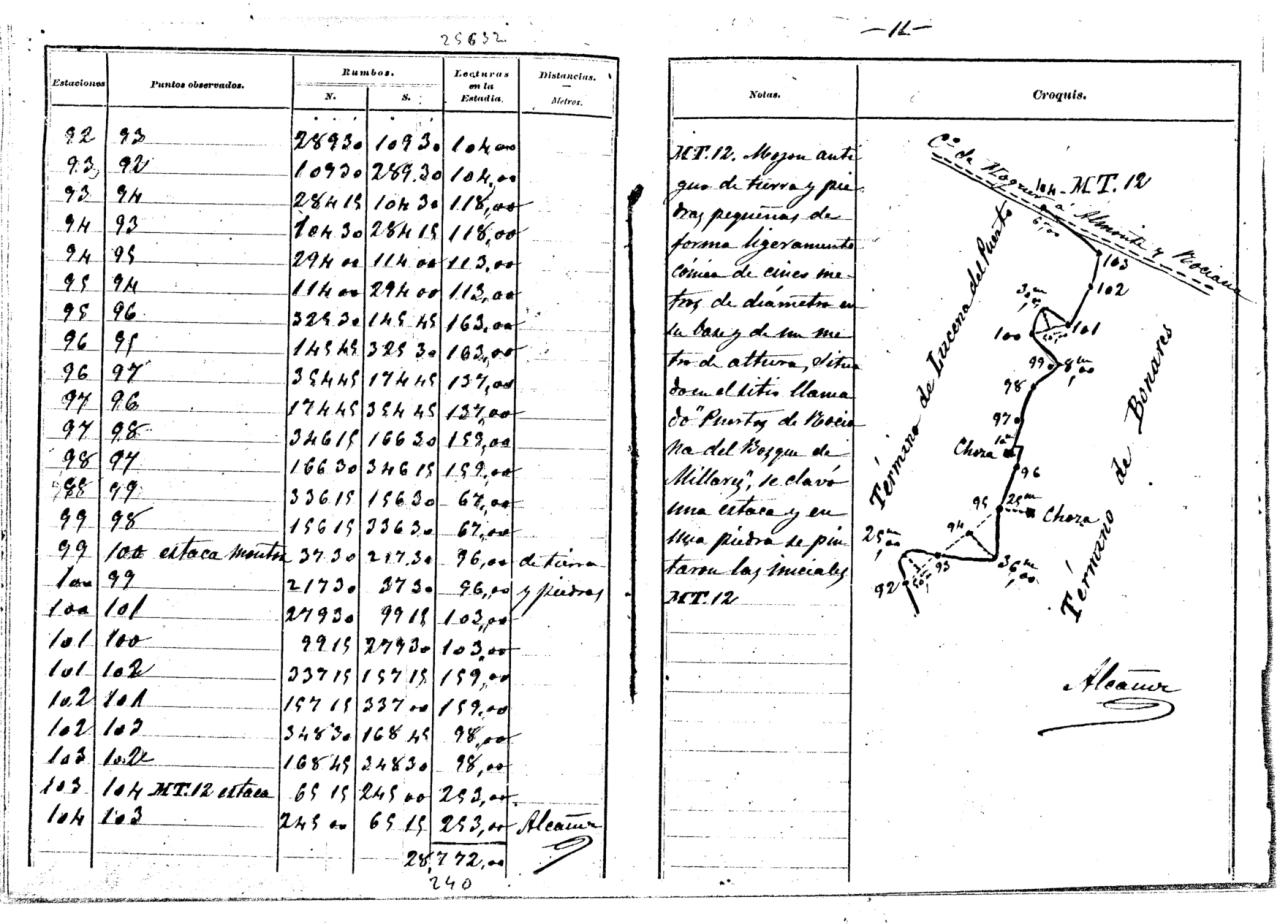 25632
Estaciones Puntos observados. Rumbos. Lecturas en la Estadia. Distancias. — Metros.
N. S.
92 93 28930 10930 104,00
93 92 10930 28930 104,00
93 94 28415 10430 118,00
94 93 10430 28415 118,00
94 95 29400 11400 113,00
95 94 11400 29400 113,00
95 96 32530 14545 163,00
96 95 14545 32530 163,00
96 97 35445 17445 137,00
97 96 17445 35445 137,00
97 98 34615 16630 159,00
98 97 16630 34615 159,00
98 99 33615 15630 67,00
99 98 15615 33630 67,00
99 100 estaca monton 3730 21730 96,00 de tierra
100 99 21730 3730 96,00 y piedras
100 101 27930 9915 103,00
101 100 9915 27930 103,00
101 102 33715 15715 159,00
102 101 15715 33700 159,00
102 103 34830 16845 98,00
103 102 16845 34830 98,00
103 104 MT.12 estaca 6515 24500 253,00
104 103 24500 6515 253,00
28,772,00
240
Notas.
MT.12. Mojon anti
guo de tierra y pie
dras pequeñas de
forma ligeramente
cónica de cinco me-
tros de diámetro en
su base y de un me
tro de altura, situa
do en el sitio llama
do "Puertos de Rocia
na del Bosque de
", se clavó
una estaca y en
una piedra se pin
taron las iniciales
MT.12
Croquis.
Cº de á Almonte y Rociana
104-MT.12
6,00
103
102
30m,00
100
101
50,00
99
8m,00
98
97
1a
Choza
96
95
25m
Choza
94
25m,00
93
36m,00
92
50,00
Término de Lucena del Puerto
Término de Bonares